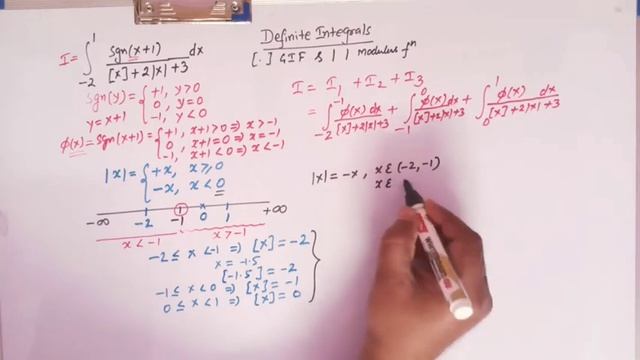 Definite Integrals
[.] GIF & | | modulus fⁿ
I = ∫₋₂¹ sgn(x+1) / ([x]+2|x|+3) dx
sgn(y) = { +1, y>0
0, y=0
-1, y<0
y = x+1
φ(x) = sgn(x+1) = { +1, x+1>0 ⇒ x>-1
0, x+1=0 ⇒ x=-1
-1, x+1<0 ⇒ x<-1
|x| = { +x, x≥0
-x, x<0
-∞ -2 -1 0 1 +∞
x<-1 x>-1
-2 ≤ x < -1 ⇒ [x] = -2
x = -1.5
[-1.5] = -2
-1 ≤ x < 0 ⇒ [x] = -1
0 ≤ x < 1 ⇒ [x] = 0
I = I₁ + I₂ + I₃
= ∫₋₂⁻¹ φ(x)dx / ([x]+2|x|+3) + ∫₋₁⁰ φ(x)dx / ([x]+2|x|+3) + ∫₀¹ φ(x) dx / ([x]+2|x|+3)
|x| = -x, x ε (-2, -1)
x ε